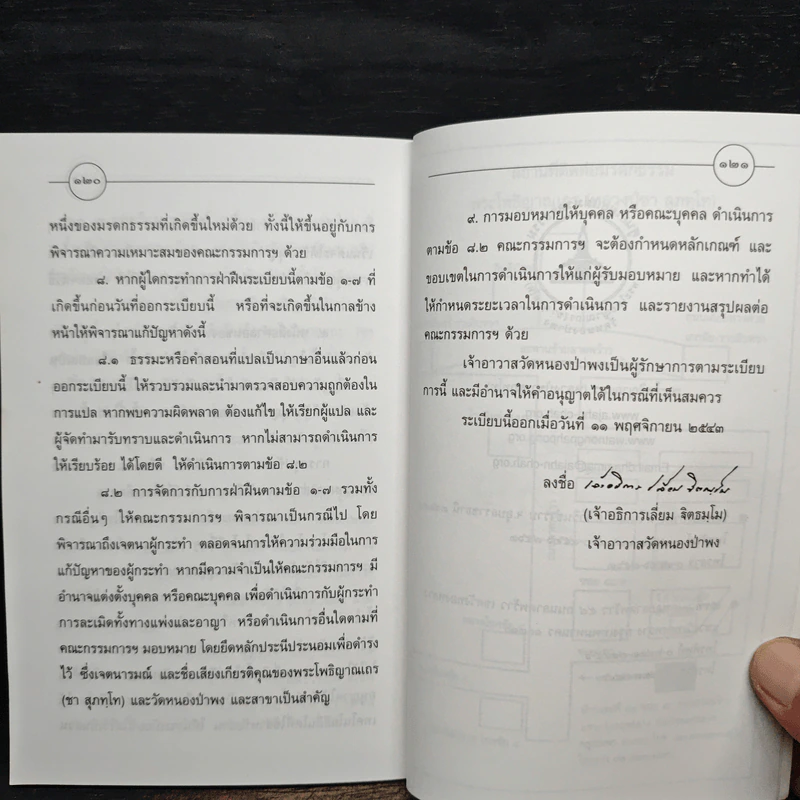 ๑๒๐
หนึ่งของมรดกธรรมที่เกิดขึ้นใหม่ด้วย ทั้งนี้ให้ขึ้นอยู่กับการ
พิจารณาความเหมาะสมของคณะกรรมการฯ ด้วย
๘. หากผู้ใดกระทำการฝ่าฝืนระเบียบนี้ตามข้อ ๑-๗ ที่
เกิดขึ้นก่อนวันที่ออกระเบียบนี้ หรือที่จะเกิดขึ้นในกาลข้าง
หน้าให้พิจารณาแก้ปัญหาดังนี้
๘.๑ ธรรมะหรือคำสอนที่แปลเป็นภาษาอื่นแล้วก่อน
ออกระเบียบนี้ ให้รวบรวมและนำมาตรวจสอบความถูกต้องใน
การแปล หากพบความผิดพลาด ต้องแก้ไข ให้เรียกผู้แปล และ
ผู้จัดทำมารับทราบและดำเนินการ หากไม่สามารถดำเนินการ
ให้เรียบร้อย ได้โดยดี ให้ดำเนินการตามข้อ ๘.๒
๘.๒ การจัดการกับการฝ่าฝืนตามข้อ ๑-๗ รวมทั้ง
กรณีอื่นๆ ให้คณะกรรมการฯ พิจารณาเป็นกรณีไป โดย
พิจารณาถึงเจตนาผู้กระทำ ตลอดจนการให้ความร่วมมือในการ
แก้ปัญหาของผู้กระทำ หากมีความจำเป็นให้คณะกรรมการฯ มี
อำนาจแต่งตั้งบุคคล หรือคณะบุคคล เพื่อดำเนินการกับผู้กระทำ
การละเมิดทั้งทางแพ่งและอาญา หรือดำเนินการอื่นใดตามที่
คณะกรรมการฯ มอบหมาย โดยยึดหลักประนีประนอมเพื่อดำรง
ไว้ ซึ่งเจตนารมณ์ และชื่อเสียงเกียรติคุณของพระโพธิญาณเถร
(ชา สุภทฺโท) และวัดหนองป่าพง และสาขาเป็นสำคัญ
๑๒๑
๙. การมอบหมายให้บุคคล หรือคณะบุคคล ดำเนินการ
ตามข้อ ๘.๒ คณะกรรมการฯ จะต้องกำหนดหลักเกณฑ์ และ
ขอบเขตในการดำเนินการให้แก่ผู้รับมอบหมาย และหากทำได้
ให้กำหนดระยะเวลาในการดำเนินการ และรายงานสรุปผลต่อ
คณะกรรมการฯ ด้วย
เจ้าอาวาสวัดหนองป่าพงเป็นผู้รักษาการตามระเบียบ
การนี้ และมีอำนาจให้คำอนุญาตได้ในกรณีที่เห็นสมควร
ระเบียบนี้ออกเมื่อวันที่ ๑๑ พฤศจิกายน ๒๕๔๓
ลงชื่อ เจ้าอธิการ เลี่ยม จิตธมฺโม
(เจ้าอธิการเลี่ยม จิตธมฺโม)
เจ้าอาวาสวัดหนองป่าพง